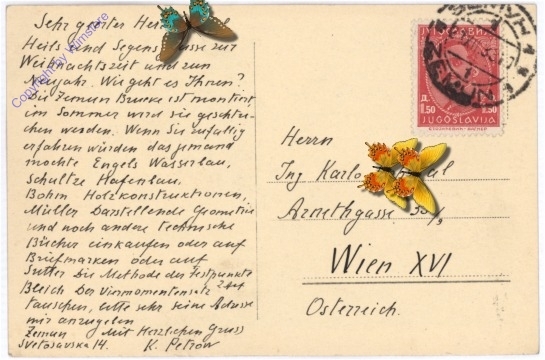 Sehr geerter Herr
Heils und Segens Grüsse zur
Weihnachtszeit und zum
Neujahr. Wie geht es Ihnen?
Die Zemun Brucke ist montiert
im Sommer wird sie gestri-
chen werden. Wenn Sie zufallig
erfahren würden das jemand
möchte Engels Wasserbau,
Schultze Hafenbau,
Böhm Holzkonstruktionen,
Müller Darstellende Geometrie
und noch andere technische
Bücher einkaufen oder auf
Briefmarken oder auf
Sutter Die Methode der Festpunkte
Bleich Der Viermomentensatz
tauschen, bitte sehr seine Adresse
mir anzugeben
Zemun Mit Herzlichen Gruss
Svetosavska 14. K. Petrow
Copyright by Wilmstore
ЈУГОСЛАВИЈА
1
Д. 1.50 D. 1.50
JUGOSLAVIJA
ZEMUN 1
Herrn
Ing Karlo
Arnethgasse 30/,
Wien XVI
Österreich.